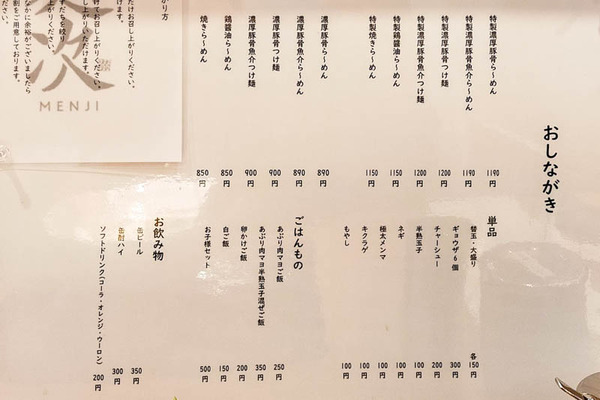 おしながき
特製濃厚豚骨ら〜めん 1190円
特製濃厚豚骨魚介ら〜めん 1190円
特製濃厚豚骨つけ麺 1200円
特製濃厚豚骨魚介つけ麺 1200円
特製鶏醤油ら〜めん 1150円
特製焼きら〜めん 1150円
濃厚豚骨ら〜めん 890円
濃厚豚骨魚介ら〜めん 890円
濃厚豚骨つけ麺 900円
濃厚豚骨魚介つけ麺 900円
鶏醤油ら〜めん 850円
焼きら〜めん 850円
単品
替玉・大盛り 各150円
ギョウザ6個 300円
チャーシュー 200円
半熟玉子 100円
ネギ 100円
極太メンマ 100円
キクラゲ 100円
もやし 100円
ごはんもの
あぶり肉マヨご飯 250円
あぶり肉マヨ半熟玉子混ぜご飯 350円
卵かけご飯 200円
白ご飯 150円
お子様セット 500円
お飲み物
缶ビール 350円
缶酎ハイ 300円
ソフトドリンク(コーラ・オレンジ・ウーロン) 200円
がり方
けます。
たけお召し上がりください。
けてお召し上がりください。
し上がりいただけます。
すだちを絞り
上がりください。
なかに余裕がございましたら
割をご用意しております。
ださい。
MENJI